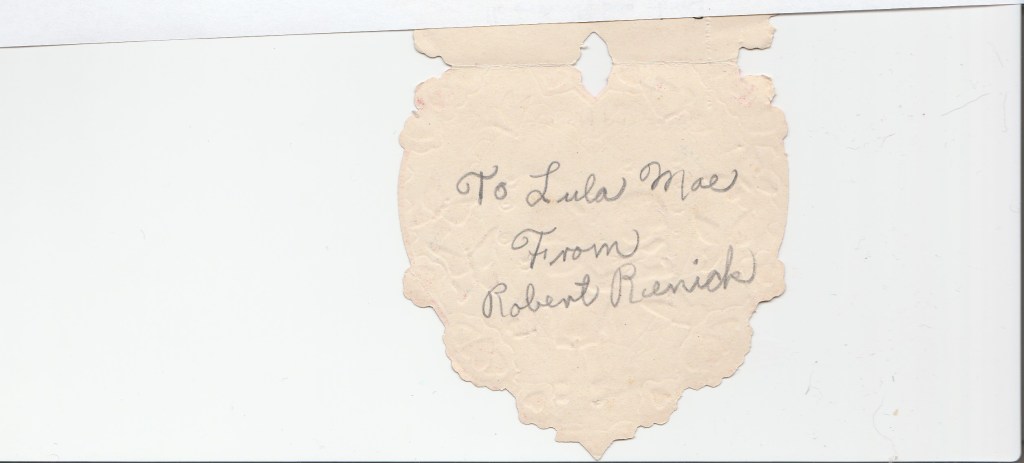 To Lula Mae
From
Robert Renick